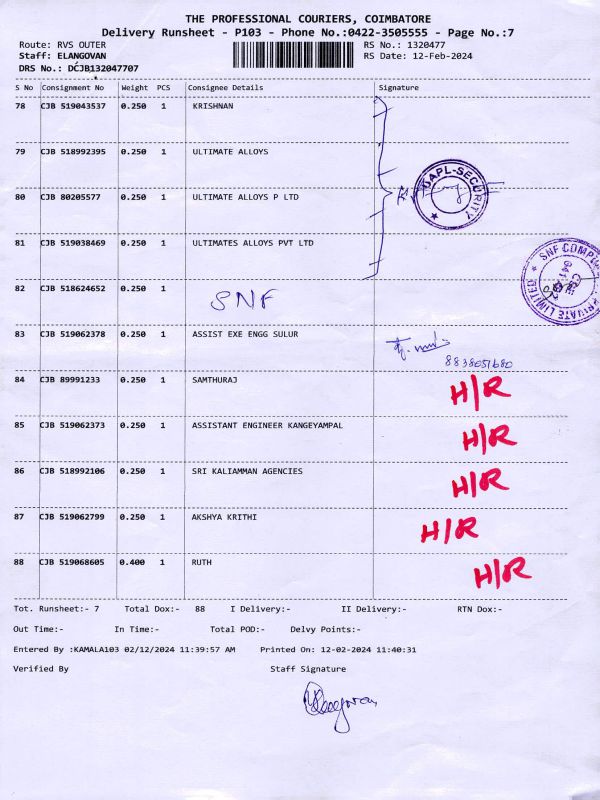 THE PROFESSIONAL COURIERS, COIMBATORE
Delivery Runsheet - P103 - Phone No.:0422-3505555 - Page No.:7
Route: RVS OUTER RS No.: 1320477
Staff: ELANGOVAN RS Date: 12-Feb-2024
DRS No.: DCJB132047707
S No Consignment No Weight PCS Consignee Details Signature
78 CJB 519043537 0.250 1 KRISHNAN
79 CJB 518992395 0.250 1 ULTIMATE ALLOYS
80 CJB 80205577 0.250 1 ULTIMATE ALLOYS P LTD
UAPL-SECURITY
81 CJB 519038469 0.250 1 ULTIMATES ALLOYS PVT LTD
82 CJB 518624652 0.250 1 SNF
SNF PRIVATE LIMITED
83 CJB 519062378 0.250 1 ASSIST EXE ENGG SULUR
8838051680
84 CJB 89991233 0.250 1 SAMTHURAJ H/R
85 CJB 519062373 0.250 1 ASSISTANT ENGINEER KANGEYAMPAL H/R
86 CJB 518992106 0.250 1 SRI KALIAMMAN AGENCIES H/R
87 CJB 519062799 0.250 1 AKSHYA KRITHI H/R
88 CJB 519068605 0.400 1 RUTH H/R
Tot. Runsheet:- 7 Total Dox:- 88 I Delivery:- II Delivery:- RTN Dox:-
Out Time:- In Time:- Total POD:- Delvy Points:-
Entered By :KAMALA103 02/12/2024 11:39:57 AM Printed On: 12-02-2024 11:40:31
Verified By Staff Signature